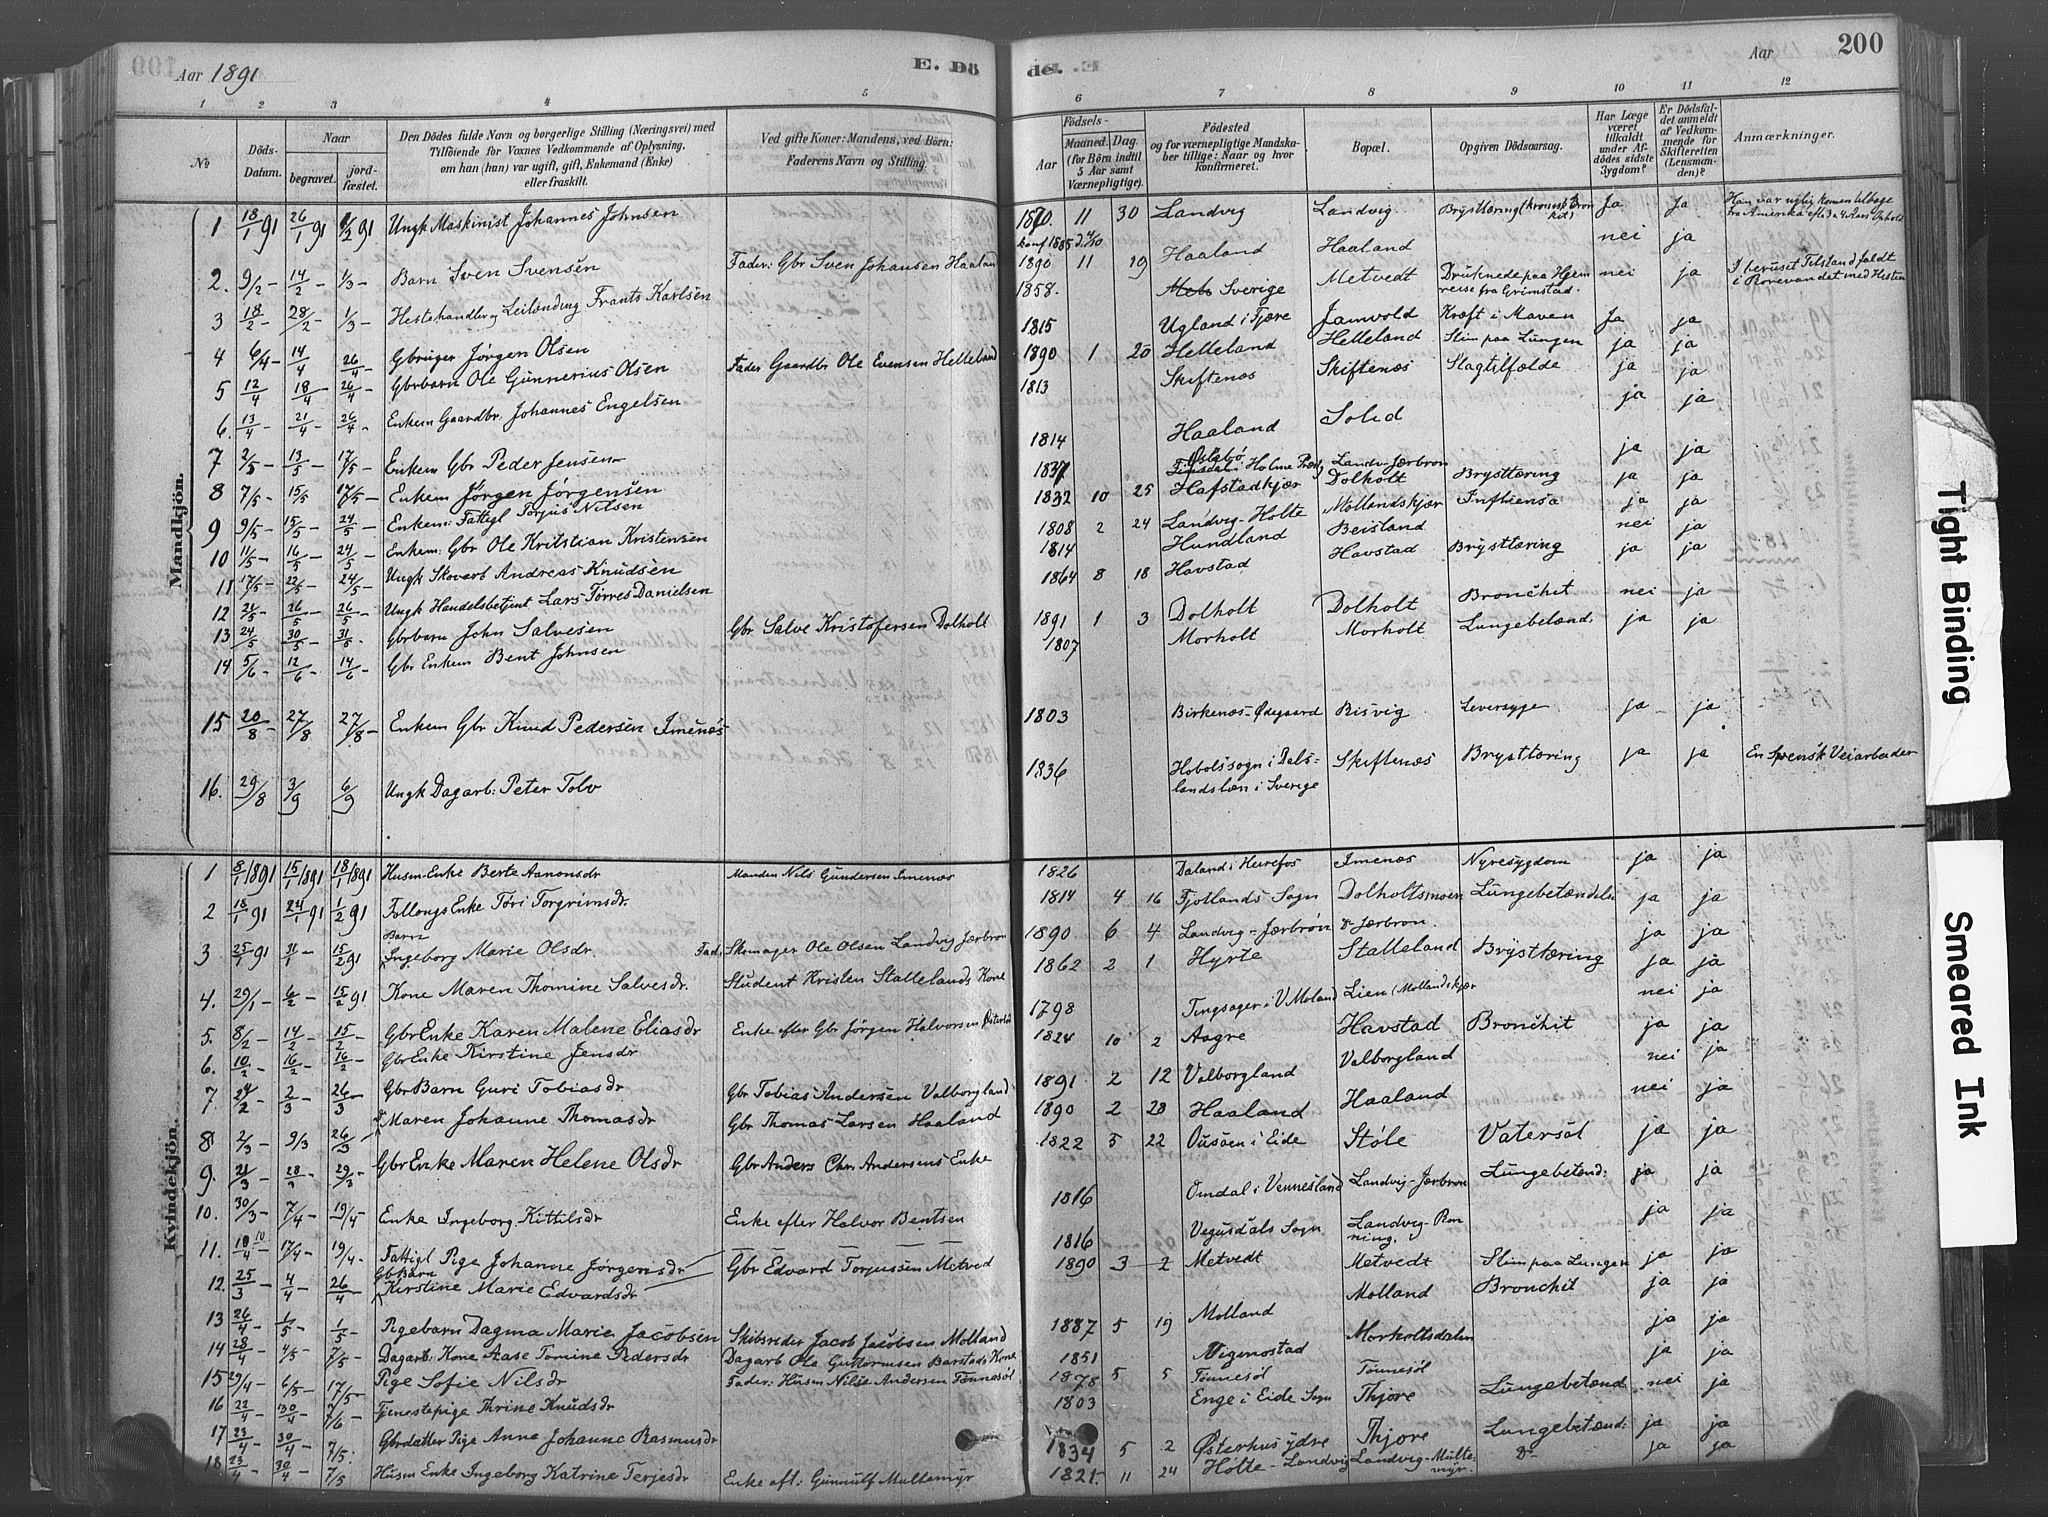 Aar 1891
E. Dö
de.
Aar
200
1 2 3 4 5 6 7 8 9 10 11 12
No
Döds-Datum.
Naar
begravet.
jord-fæstet.
Den Dödes fulde Navn og borgerlige Stilling (Næringsvei) med
Tilföiende for Voxnes Vedkommende af Oplysning,
om han (hun) var ugift, gift, Enkemand (Enke)
eller fraskilt.
Ved gifte Koner: Mandens, ved Börn:
Faderens Navn og Stilling.
Födsels-
Aar
Maaned. Dag.
(for Börn indtil
5 Aar samt
Værnepligtige).
Födested
og for værnepligtige Mandska-
ber tillige: Naar og hvor
konfirmeret.
Bopæl.
Opgiven Dödsaarsag.
Har Læge
været
tilkaldt
under Af-
dödes sidste
Sygdom?
Er Dödsfal-
det anmeldt
af Vedkom-
mende for
Skifteretten
(Lensman-
den)?
Anmærkninger.
Mandkjön.
1 18/1 91 26/1 91 1/2 91 Ungk Maskinist Johannes Johnsen 1870. 11 30 Landvig Landvig Brysttæring (kronisk Bronkit) Ja Ja
konf 1885
2. 9/2 - 14/2 - 1/3 - Barn Sven Svensen Fader: Gbr Sven Johansen Haaland 1890 11 19 Haaland Haaland nei ja
3 18/2 - 28/2 - 1/3 - Hestehandler og Leilænding Frants Karlsen 1858. Sverige Metvedt Druknede paa Hjemreise fra Grimstad. nei ja I beruset Tilstand faldt i Rorevandet med Hesten
4 6/4 - 14/4 26/4 - Gbruger Jørgen Olsen 1815 Ugland i Fjære Jamvold Kræft i Maven Ja ja
5 12/4 18/4 - 26/4 - Gbrbarn Ole Gunnerius Olsen Fader Gaardbr Ole Evensen Helleland 1890 1 20 Helleland Helleland Slim paa Lungen ja ja
6. 13/4 - 21/4 - 26/4 - Enkem Gaardbr. Johannes Engelsen 1813 Skiftenæs Skiftenæs Slagtilfælde ja ja
7 2/5 - 13/5 - 17/5 - Enkem Gbr Peder Jensen 1814 Haaland Solid ja ja
8 7/5 - 15/5 17/5 - Enkem Jörgen Jörgensen 1837 Landv. Jærbron ja ja
9 9/5 - 15/5 - 24/5 - Enkem: Fattigl Torjus Nilsen 1832 10 25 Hafstadkjær Dolholt Brysttæring ja ja
10 11/5 - 16/5 - 24/5 - Enkem: Gbr Ole Kritstian Kristensen 1808 2 24 Landvig-Holte Mollandskjær Influensa ja ja
11 17/5 - 22/5 - 24/5 - Ungk Skovarb Andreas Knudsen 1814 Hundland Beisland nei ja
12 21/5 - 26/5 - 26/5 - Ungk Handelsbetjent Lars Tørres Danielsen 1864 8 18 Havstad Havstad Brysttæring ja ja
13 24/5 30/5 - 31/5 - Gbrbarn John Salvesen Gbr Salve Kristofersen Dolholt 1891 1 3 Dolholt Dolholt Bronchit nei ja
14 5/6 - 12/6 - 14/6 - Gbr Enkem Bent Johnsen 1807 Morholt Morholt Lungebetænd. ja ja
15 20/8 - 27/8 27/8 - Enkem Gbr Knud Pedersen Imenæs 1803 Birkenæs-Ødegaard Risvig Leversyge ja ja
16. 29/8 3/9 6/9 Ungk Dagarb: Peter Tolv 1836 Hobolssogn i Dalslandslæn i Sverige Skiftenæs Brysttæring ja ja En svensk Veiarbeider
Kvindekjön.
1 8/1 1891 15/1 1891 18/1 1891 Husm-Enke Berte Aanonsdr Manden Nils Gundersen Imenæs 1826 Daland i Herefos Imenæs Nyresygdom ja ja
2 18/1 91 24/1 91 1/2 91 Follougs Enke Töri Torgrimsdr. 1814 4 16 Fjotlands Sogn Dolholtsmoen Lungebetændelse ja ja
3 25/1 91 31/1 - 15/2 91 Barn Ingeborg Marie Olsdr. Fad: Skomager Ole Olsen Landvig Jærbron 1890 6 4 Landvig-Jærbron Jærbron ja ja
4. 29/1 - 6/2 - 15/2 91 Kone Maren Thomine Salvesdr. Student Kristen Stallelands Kone 1862 2 1 Hyrte Stalleland Brysttæring ja ja
5. 8/2 - 14/2 - 15/2 - Gbr Enke Karen Malene Eliasdr Enke efter Gbr Jörgen Halvorsen 1798 Tingsager i V Moland Lien (Mollandskjær nei ja
6. 10/2 - 16/2 - 16/2 - Gbr Enke Kirstine Jensdr 1824 10 2 Aagre Havstad Bronchit ja ja
7. 24/2 - 2/3 - 26/3 - Gbr Barn Guri Tobiasdr Gbr Tobias Andersen Valborgland 1891 2 12 Valborgland Valborgland nei ja
8 2/3 - 9/3 26/3 - Maren Johanne Thomasdr Gbr Thomas Larsen Haaland 1890 2 28 Haaland Haaland nei ja
9. 21/3 - 28 - 29/3 - Gbr Enke Maren Helene Olsdr Gbr Anders Chr. Andersens Enke 1822 5 22 Ousøen i Eide Støle Vatersot ja ja
10. 30/3 - 7/4 - 19/4 - Enke Ingeborg Kittilsdr Enke efter Halvor Bentsen 1816 Omdal i Vennesland Landvig-Jærbron Lungebetænd: ja ja
11. 10/4 17/4 - 19/4 - Fattigl Pige Johanne Jørgensdr 1816 Vegusdals Sogn Landvig-Ronning. ja ja
12. 25/3 4/4 - 26/4 - Gbr Barn Kirstine Marie Edvardsdr Gbr Edvard Torjussen Metved 1890 3 2 Metvedt Metvedt Slim paa Lungen ja ja
13 26/4 - 1/5 - 1/5 - Pigebarn Dagma Marie Jacobsen Skibsreder Jacob Jacobsen Molland 1887 5 19 Molland Molland Bronchit ja ja
14 28/4 - 4/5 - 7/5 - Dagarb: Kone Aase Tomine Pedersdr Dagarb Ole Guttormsen Barstads Kone 1851 Morholtsdalen ja ja
15 29/4 - 6/5 - 17/5 - Pige Sofie Nilsdr Fader: Husm Nils Andersen Tönnesöl 1878 5 5 Tönnesöl Tönnesöl ja ja
16 22/4 - 30/4 - 7/6 - Tjenestepige Thrine Knudsdr 1803 Enge i Eide Sogn Thjore Lungebetænd nei ja
17 23/4 - 30/4 - 7/5. Gbrdatter Pige Anne Johanne Rasmusdr 1834 5 2 Østerhus ydre Thjore Lungebetænd: ja ja
18 23/4 - 30/4 - 7/5 Husm Enke Ingeborg Katrine Terjesdr Enke eft: Gunnulf Multemyr 1821. 11 24 Holte-Landvig Landvig-Multemyr. Do ja ja
Tight Binding
Smeared Ink